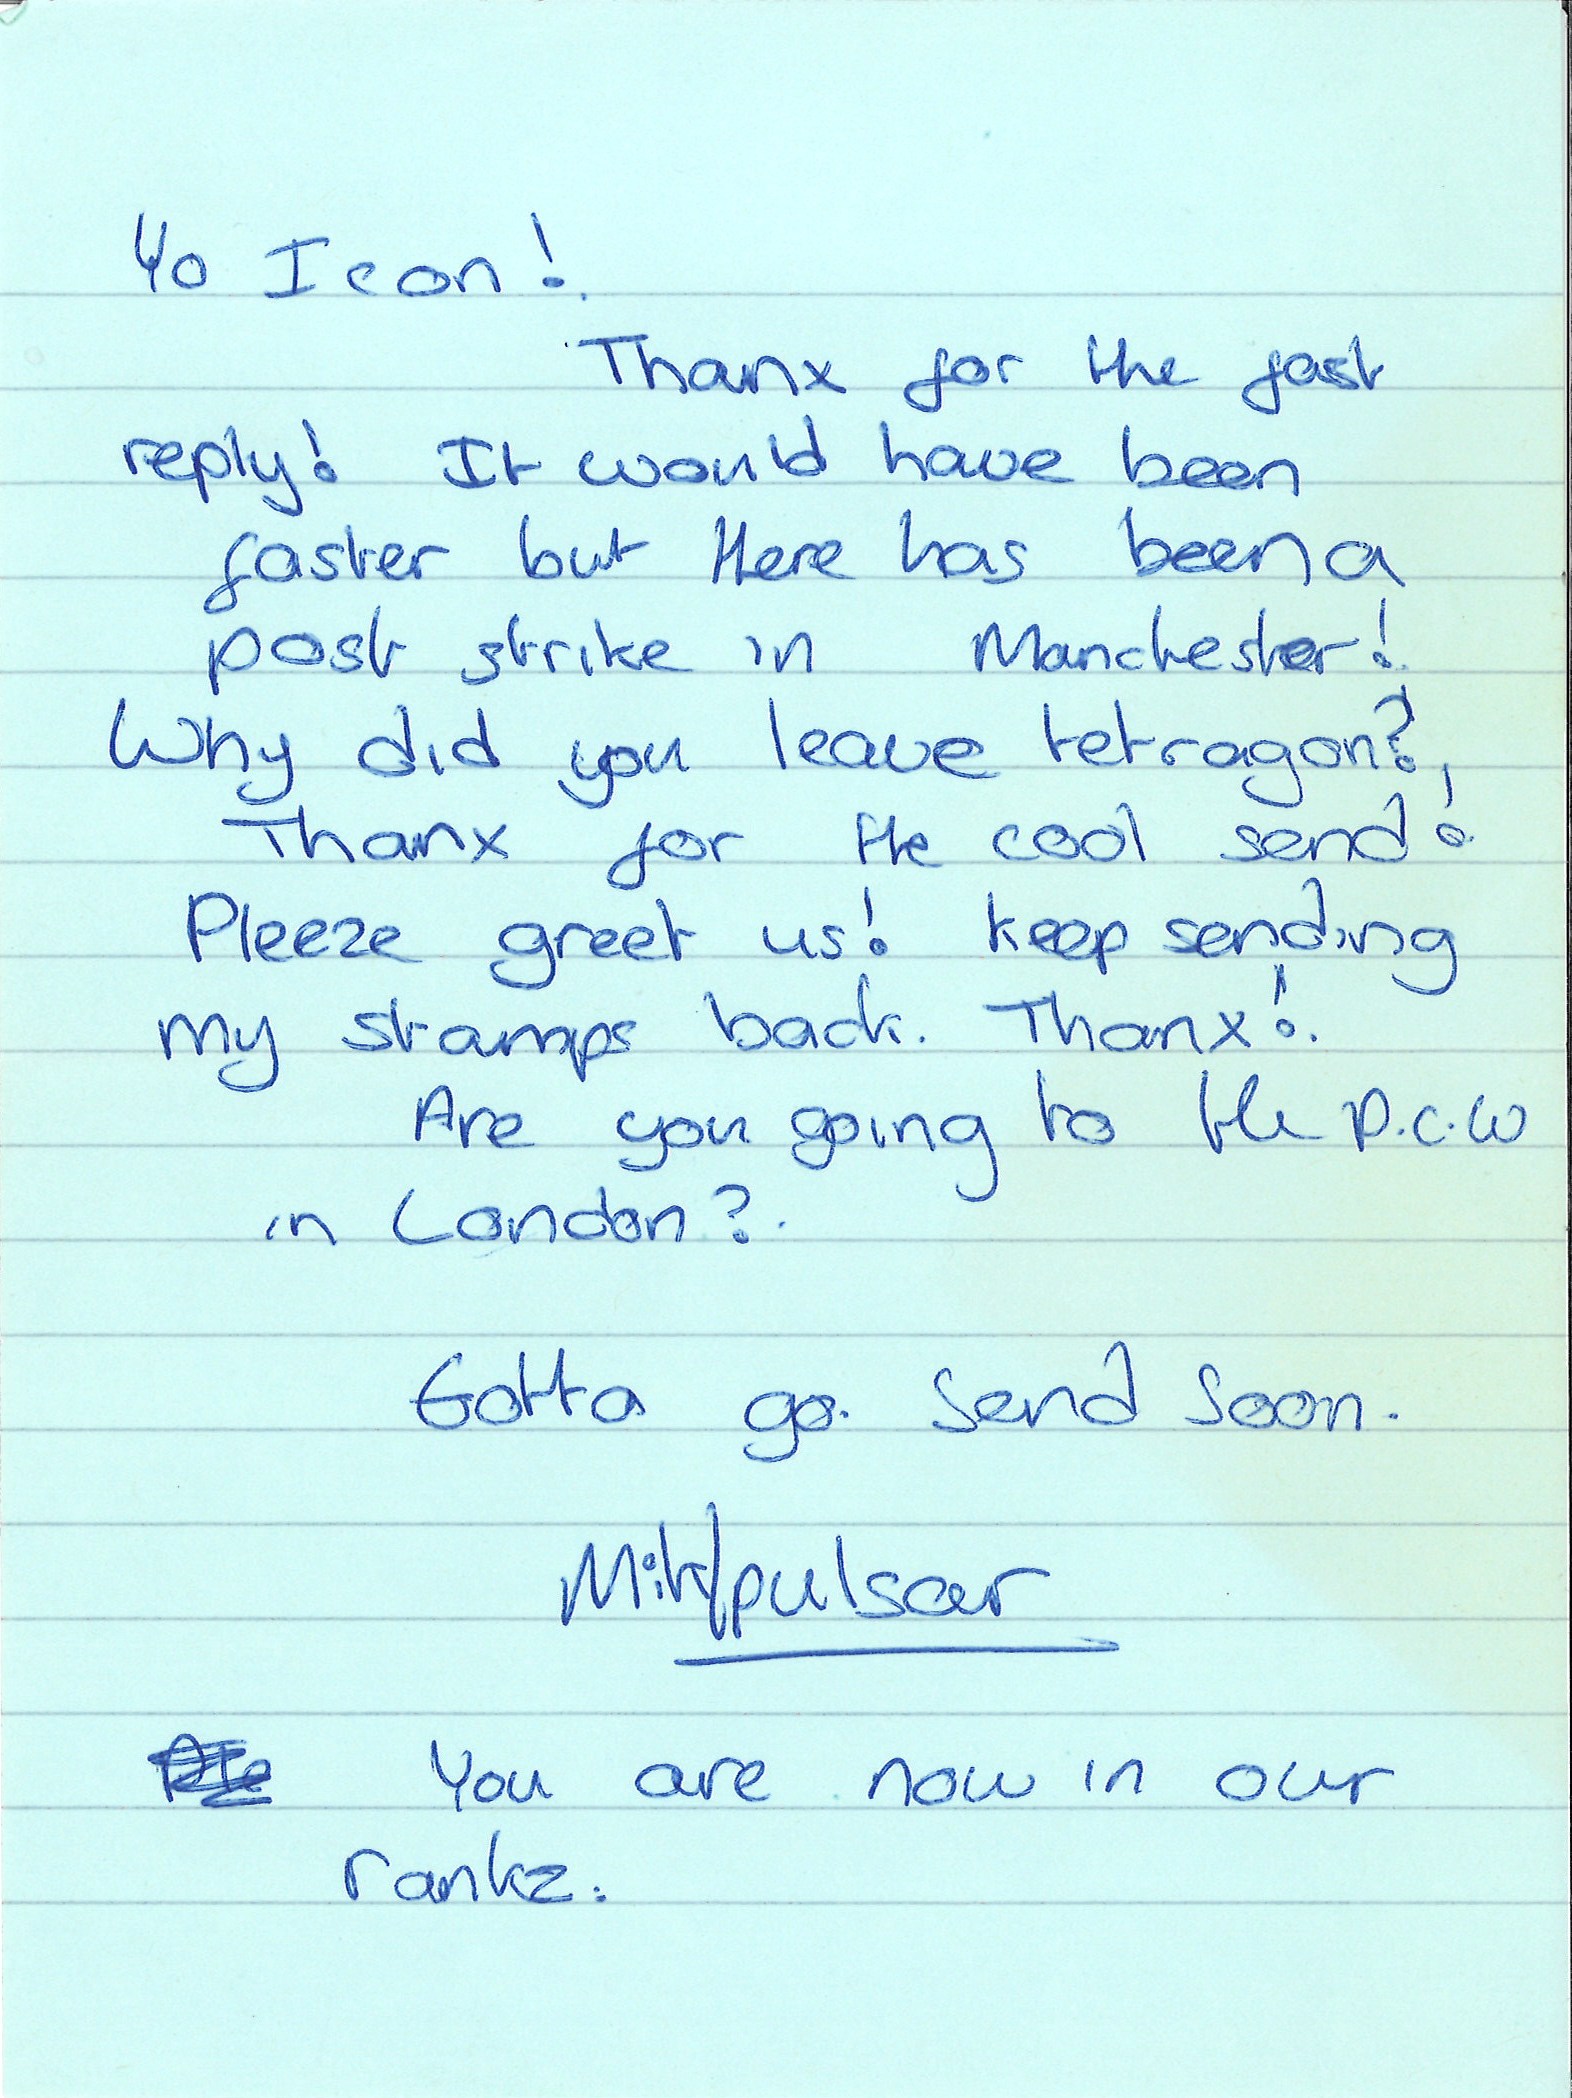 Yo Icon!
Thanx for the fast
reply! It would have been
faster but there has been a
post strike in Manchester!
Why did you leave tetragon?,
Thanx for the cool send!
Pleeze greet us! keep sending
my stamps back. Thanx!.
Are you going to the P.C.W
in London?.
Gotta go. Send Soon.
/pulsar
You are now in our
rankz.